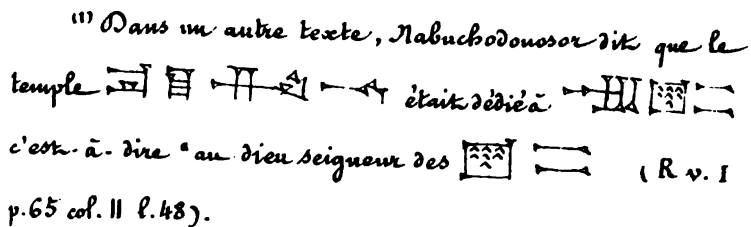 (1) Dans un autre texte, Nabuchodonosor dit que le
temple était dédié à
c'est-à-dire " au dieu seigneur des (R v. I
p.65 col. II l.48).